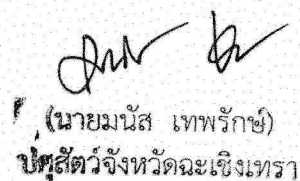 (นายมนัส เทพรักษ์)
ปศุสัตว์จังหวัดฉะเชิงเทรา